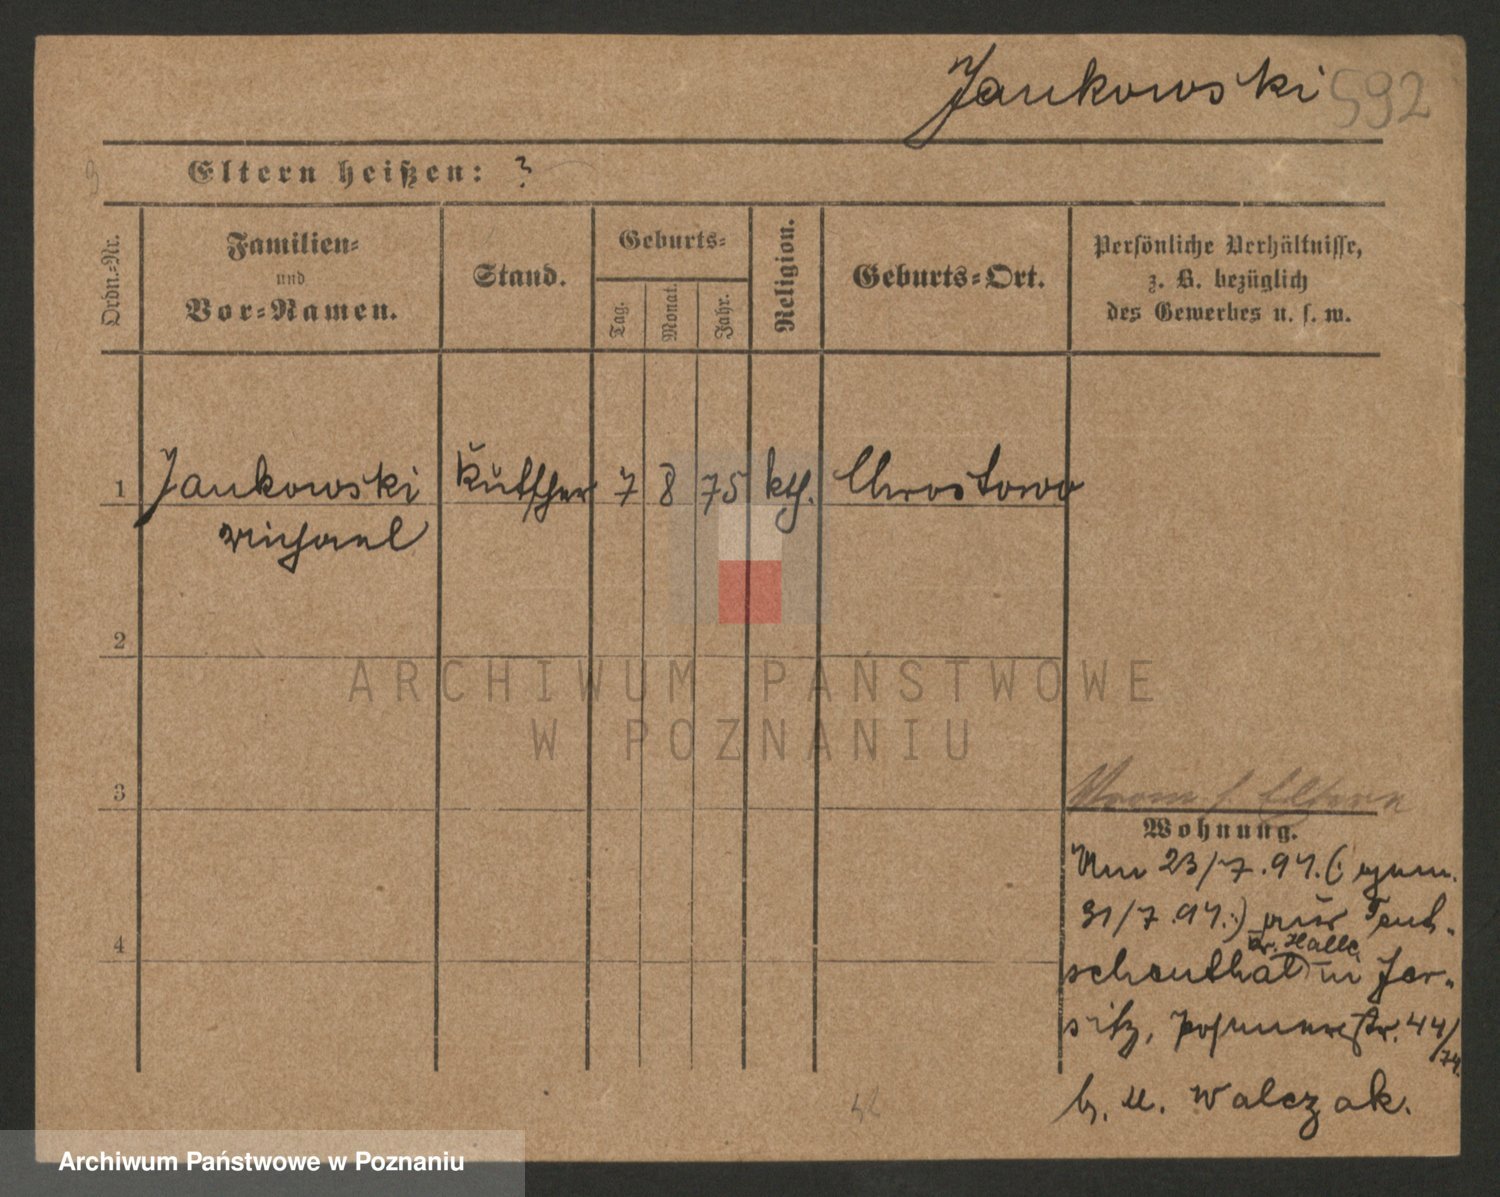 Jankowski 592
Eltern heißen: ?
Ordn.-Nr.
Familien-
und
Vor-Namen.
Stand.
Geburts-
Tag.
Monat.
Jahr.
Religion.
Geburts-Ort.
Persönliche Verhältnisse,
z. B. bezüglich
des Gewerbes u. s. w.
1 Jankowski Kutscher 7 8 75 kth. Chrostowo
Michael
2
3
4
ARCHIWUM PAŃSTWOWE
W POZNANIU
Eltern
Wohnung.
23/7.94.(: gem.
31/7.94.:) aus Teut-
kr. Halle
schenthal in Jer-
sitz, Posenerstr. 44/
74.
b. M. Walczak.
Archiwum Państwowe w Poznaniu